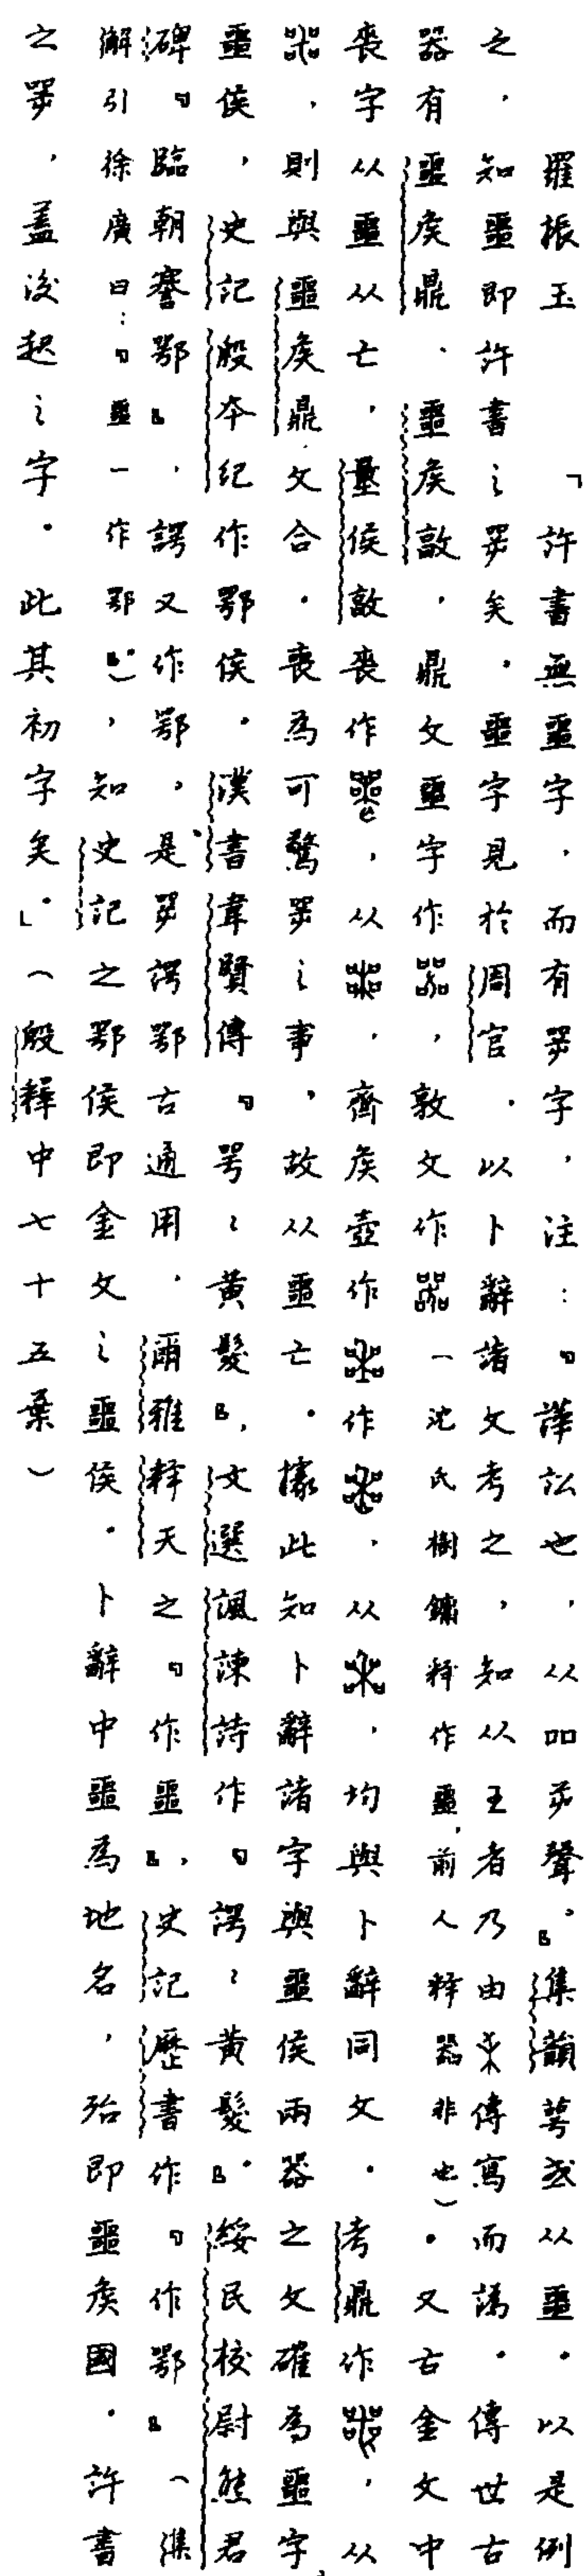 羅振玉「許書無噩字，而有㖾字，注：『譁訟也，从吅㞢聲。』集韻萼或从噩。以是例
之，知噩即許書之㖾矣。噩字見於周官。以卜辭諸文考之，知从王者乃由傳寫而譌。傳世古
器有噩矦鼎、噩矦敦，鼎文噩字作，敦文作（沈氏樹鏞釋作噩，前人釋器非也）。又古金文中
喪字从噩从亡，量侯敦喪作，从，齊矦壺作作，从，均與卜辭同文。考鼎作，从
，則與噩矦鼎文合。喪為可驚㖾之事，故从噩亡。據此知卜辭諸字與噩侯兩器之文確為噩字，
噩侯，史記殷本紀作鄂侯。漢書韋賢傳『咢〻黃髮』，文選諷諫詩作『諤〻黃髮』。綏民校尉熊君
碑『臨朝謇鄂』，諤又作鄂，是㖾諤鄂古通用。爾雅釋天之『作噩』，史記歷書作『作鄂』（集
解引徐廣曰：『噩一作鄂』。），知史記之鄂侯即金文之噩侯。卜辭中噩為地名，殆即噩矦國。許書
之㖾，蓋後起之字。此其初字矣。」（殷釋中七十五葉）